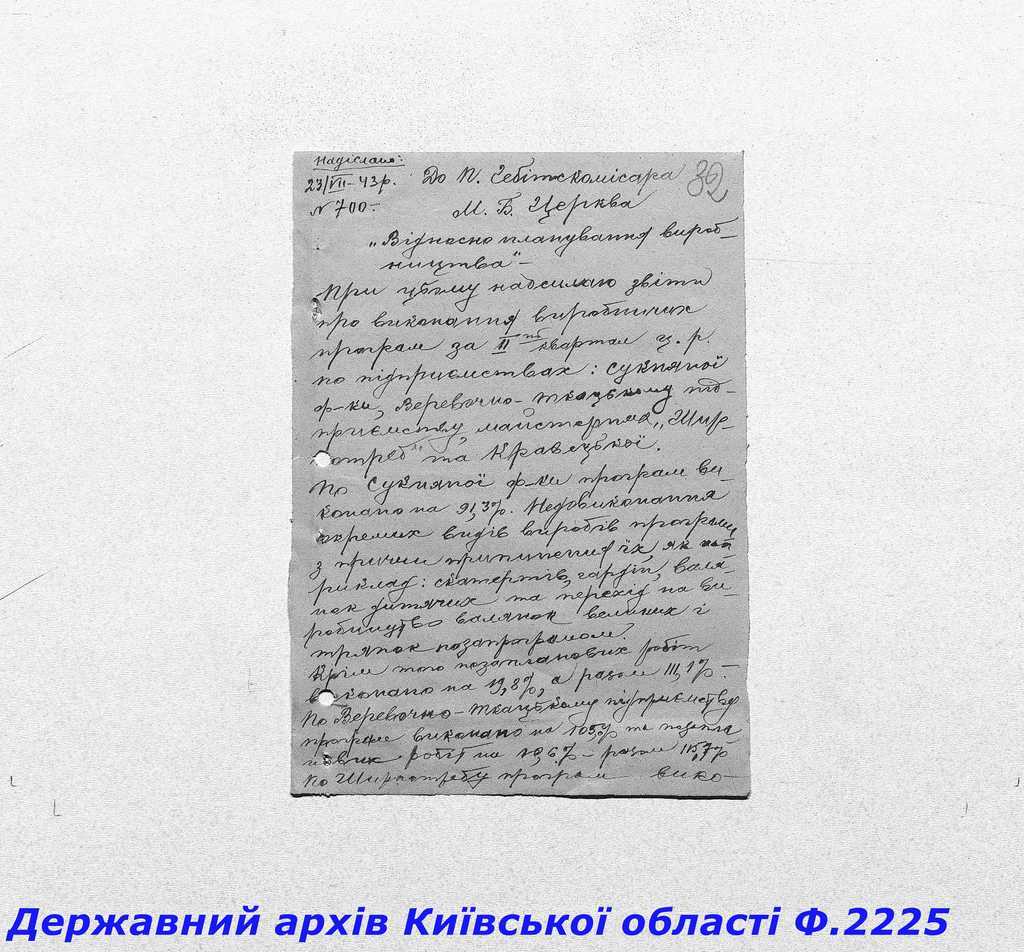 Надіслано:
23/VII-43р.
№ 700-
32
До П. Гебітскомісара
М. Б. Церква
„Відносно планування вироб-
ництва"-
При цьому надсилаю звіти
про виконання виробничих
програм за II квартал ц. р.
по підприємствах: Сукняної
ф-ки, Веревочно-ткацькому під-
приємству, майстернях „Шир-
потреб" та Кравецької.
По Сукняної ф-ки програм ви
конано на 91,3%. Недовиконання
окремих видів виробів програми
з причин припинення їх як нап
риклад: скатертів, гардін, валя-
нок дитячих та перехід на ви-
робництво валянок великих і
тряпок позапрограмом.
Крім того позапланових робіт
виконано на 19,8%, а разом 111,1%.-
По Веревочно-ткацькому підприємству
програм виконано на 105% та позапла
нових робіт на 10,6%- разом 115,7%
По Ширпотребу програм вико-
Державний архів Київської області Ф.2225